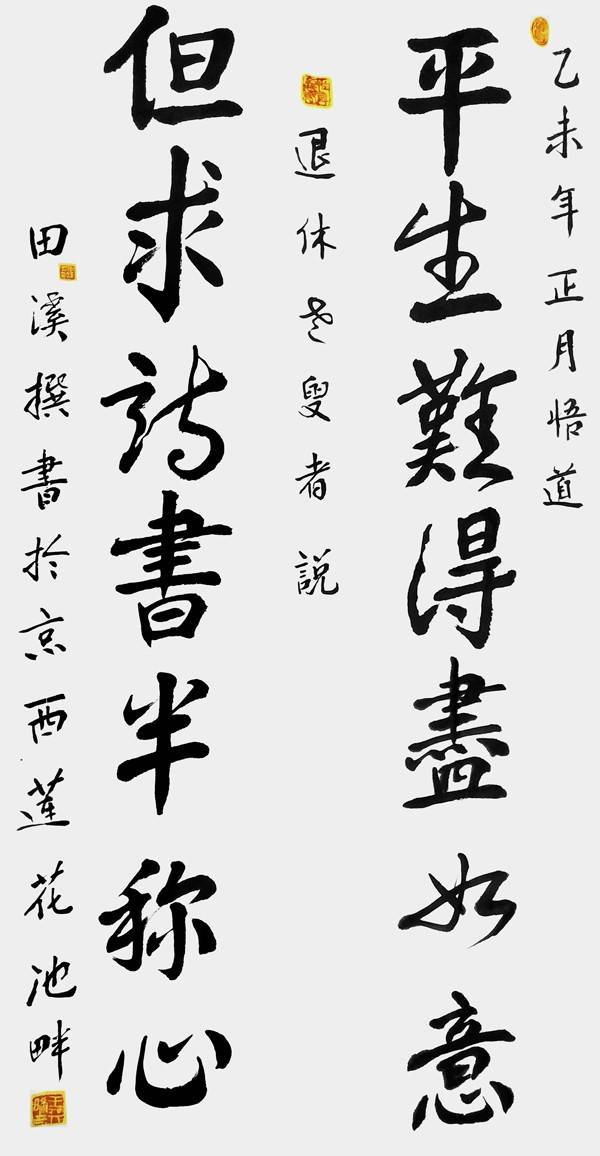 乙未年正月悟道
平生難得盡如意
退休老叟者說
但求詩書半称心
田溪撰書於京西蓮花池畔